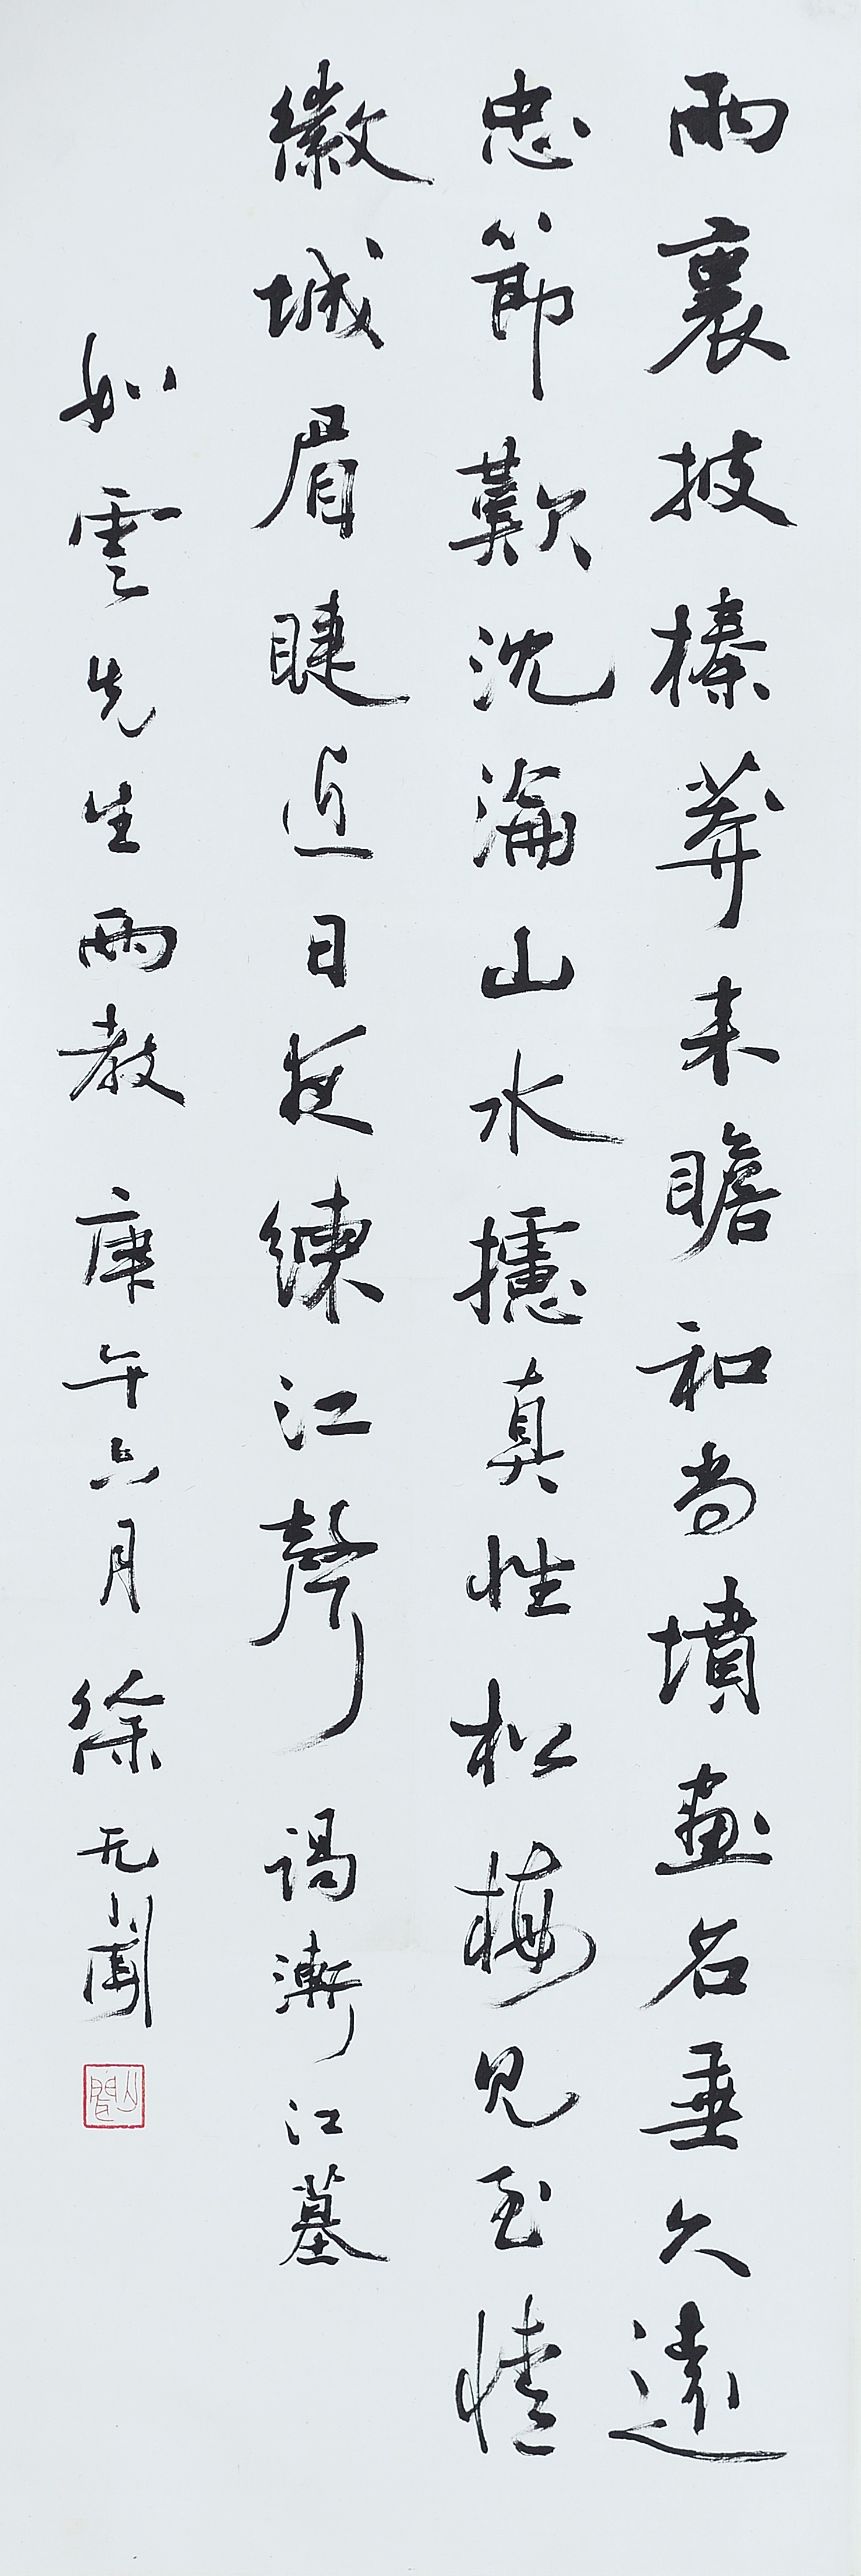 雨裏披榛莽来瞻和尚墳畫名垂久遠
忠節歎沈淪山水攄真性松梅見至情
徽城眉睫近日夜練江聲 謁漸江墓
如雲先生兩教 庚午六月 徐无聞